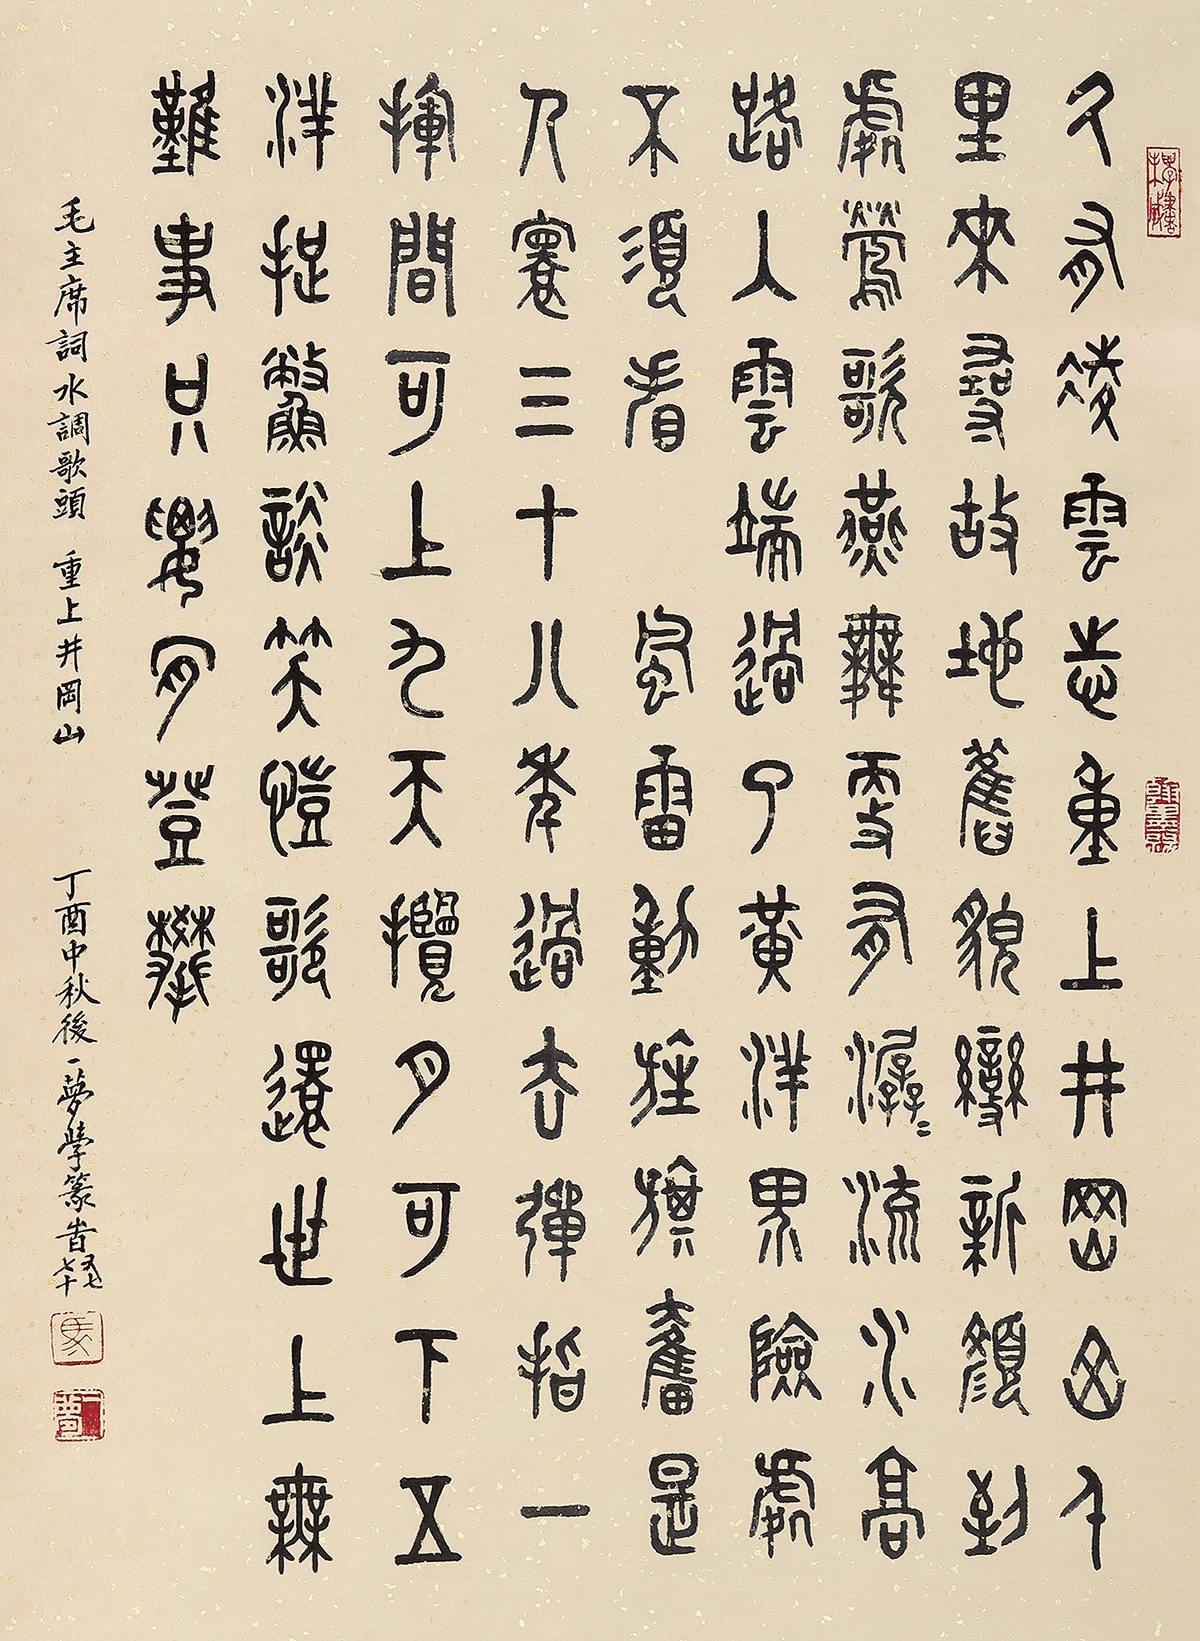 久有凌雲志重上井岡山千
里來尋故地舊貌變新顏到
處鶯歌燕舞更有潺〻流水高
路人雲端過了黃洋界險處
不須看 風雷動旌旗奮是
人寰三十八年過去彈指一
揮間可上九天攬月可下五
洋捉鱉談笑愷歌還世上無
難事只要肯登攀
毛主席詞水調歌頭 重上井岡山 丁酉中秋後一夢學篆旹七十又七
馬
一夢